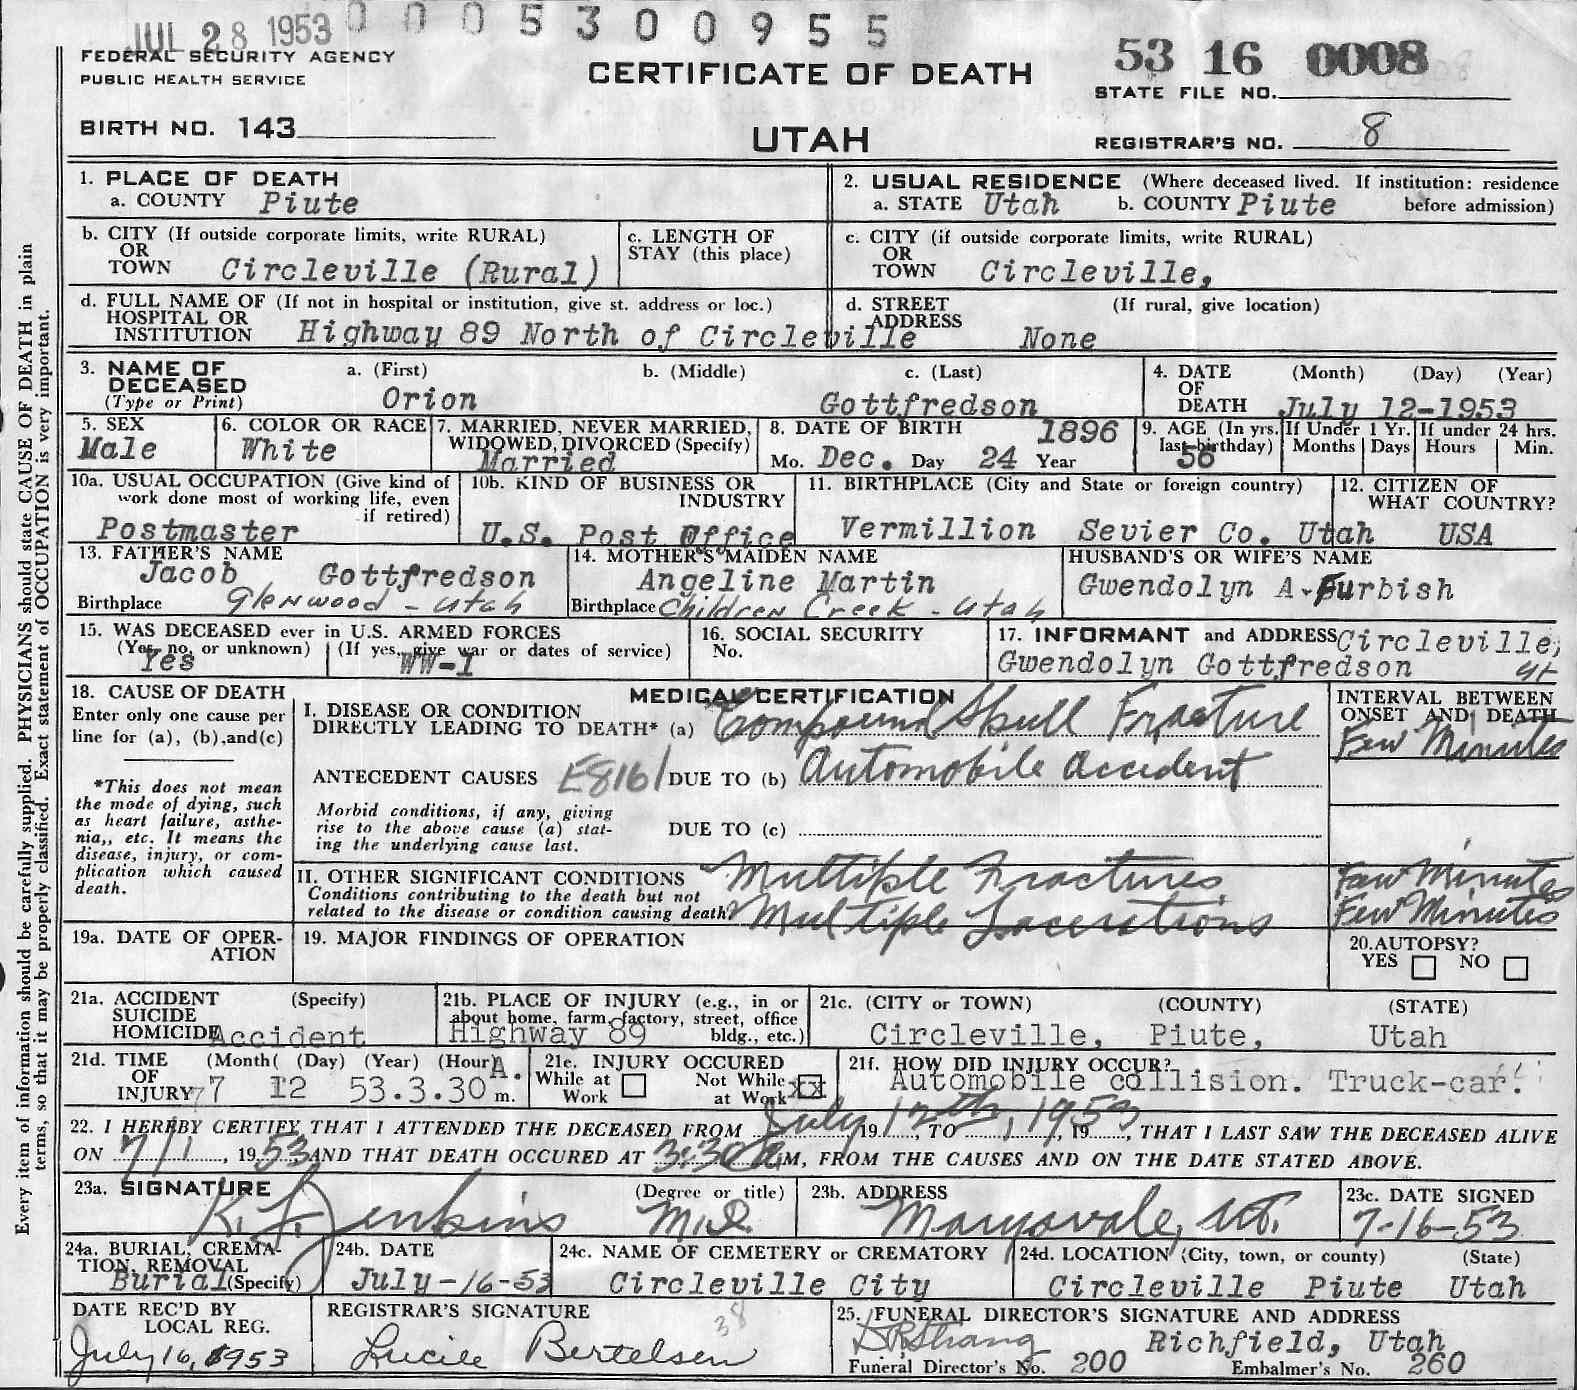 JUL 28 1953 0 0 0 5 3 0 0 9 5 5
FEDERAL SECURITY AGENCY
PUBLIC HEALTH SERVICE
CERTIFICATE OF DEATH
53 16 0008
STATE FILE NO.
BIRTH NO. 143
UTAH
REGISTRAR'S NO. 8
Every item of information should be carefully supplied. PHYSICIANS should state CAUSE OF DEATH in plain
terms, so that it may be properly classified. Exact statement of OCCUPATION is very important.
1. PLACE OF DEATH
a. COUNTY Piute
2. USUAL RESIDENCE (Where deceased lived. If institution: residence
a. STATE Utah b. COUNTY Piute before admission)
b. CITY (If outside corporate limits, write RURAL)
OR
TOWN Circleville (Rural)
c. LENGTH OF
STAY (this place)
c. CITY (if outside corporate limits, write RURAL)
OR
TOWN Circleville,
d. FULL NAME OF (If not in hospital or institution, give st. address or loc.)
HOSPITAL OR
INSTITUTION Highway 89 North of Circleville
d. STREET (If rural, give location)
ADDRESS
None
3. NAME OF a. (First) b. (Middle) c. (Last)
DECEASED
(Type or Print) Orion Gottfredson
4. DATE (Month) (Day) (Year)
OF
DEATH July 12-1953
5. SEX
Male
6. COLOR OR RACE
White
7. MARRIED, NEVER MARRIED,
WIDOWED, DIVORCED (Specify)
Married
8. DATE OF BIRTH 1896
Mo. Dec. Day 24 Year
9. AGE (In yrs.
last birthday)
56
If Under 1 Yr.
Months Days
If under 24 hrs.
Hours Min.
10a. USUAL OCCUPATION (Give kind of
work done most of working life, even
if retired)
Postmaster
10b. KIND OF BUSINESS OR
INDUSTRY
U.S. Post Office
11. BIRTHPLACE (City and State or foreign country)
Vermillion Sevier Co. Utah
12. CITIZEN OF
WHAT COUNTRY?
USA
13. FATHER'S NAME
Jacob Gottfredson
Birthplace Glenwood - Utah
14. MOTHER'S MAIDEN NAME
Angeline Martin
Birthplace Children Creek - Utah
HUSBAND'S OR WIFE'S NAME
Gwendolyn A. Furbish
15. WAS DECEASED ever in U.S. ARMED FORCES
(Yes, no, or unknown) (If yes, give war or dates of service)
Yes WW-I
16. SOCIAL SECURITY
No.
17. INFORMANT and ADDRESS Circleville,
Gwendolyn Gottfredson Ut
18. CAUSE OF DEATH
Enter only one cause per
line for (a), (b),and(c)
*This does not mean
the mode of dying, such
as heart failure, asthe-
nia,, etc. It means the
disease, injury, or com-
plication which caused
death.
MEDICAL CERTIFICATION
I. DISEASE OR CONDITION
DIRECTLY LEADING TO DEATH* (a) Compound Skull Fracture
ANTECEDENT CAUSES E8161 DUE TO (b) Automobile Accident
Morbid conditions, if any, giving
rise to the above cause (a) stat-
ing the underlying cause last.
DUE TO (c)
II. OTHER SIGNIFICANT CONDITIONS Multiple Fractures
Conditions contributing to the death but not
related to the disease or condition causing death. Multiple Lacerations
INTERVAL BETWEEN
ONSET AND DEATH
Few Minutes
Few Minutes
Few Minutes
19a. DATE OF OPER-
ATION
19. MAJOR FINDINGS OF OPERATION
20. AUTOPSY?
YES NO
21a. ACCIDENT (Specify)
SUICIDE
HOMICIDE Accident
21b. PLACE OF INJURY (e.g., in or
about home, farm, factory, street, office
bldg., etc.)
Highway 89
21c. (CITY or TOWN) (COUNTY) (STATE)
Circleville, Piute, Utah
21d. TIME (Month( (Day) (Year) (Hour)
OF
INJURY 7 12 53.3.30 A. m.
21e. INJURY OCCURED
While at Work Not While at Work xx
21f. HOW DID INJURY OCCUR?
Automobile collision. Truck-car.
22. I HEREBY CERTIFY THAT I ATTENDED THE DECEASED FROM July 12th, 1953 19, TO, 19, THAT I LAST SAW THE DECEASED ALIVE
ON 7/1, 1953 AND THAT DEATH OCCURED AT 3:30 A M, FROM THE CAUSES AND ON THE DATE STATED ABOVE.
23a. SIGNATURE (Degree or title)
K. F. Jenkins M.D.
23b. ADDRESS
Marysvale, Ut.
23c. DATE SIGNED
7-16-53
24a. BURIAL, CREMA-
TION, REMOVAL
Burial (Specify)
24b. DATE
July-16-53
24c. NAME OF CEMETERY or CREMATORY
Circleville City
24d. LOCATION (City, town, or county) (State)
Circleville Piute Utah
DATE REC'D BY
LOCAL REG.
July 16, 1953
REGISTRAR'S SIGNATURE
Lucile Bertelsen
38
25. FUNERAL DIRECTOR'S SIGNATURE AND ADDRESS
Strang Richfield, Utah
Funeral Director's No. 200 Embalmer's No. 260